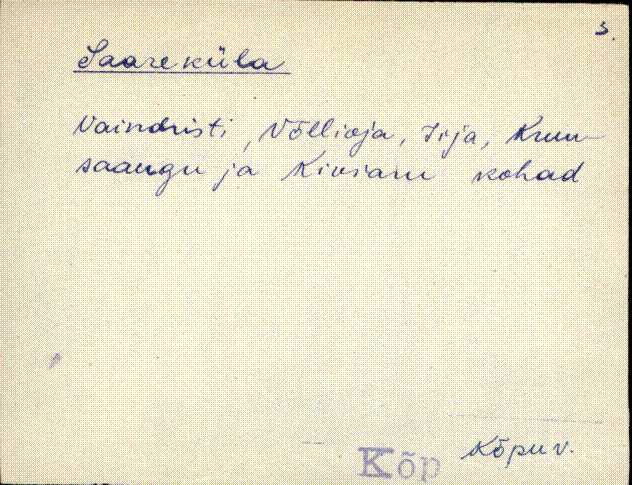 3.
Saareküla
Vaindristi, Võllioja, Irja, Kruu-
saaugu ja Kiviaru kohad
Kõp Kõpu v.